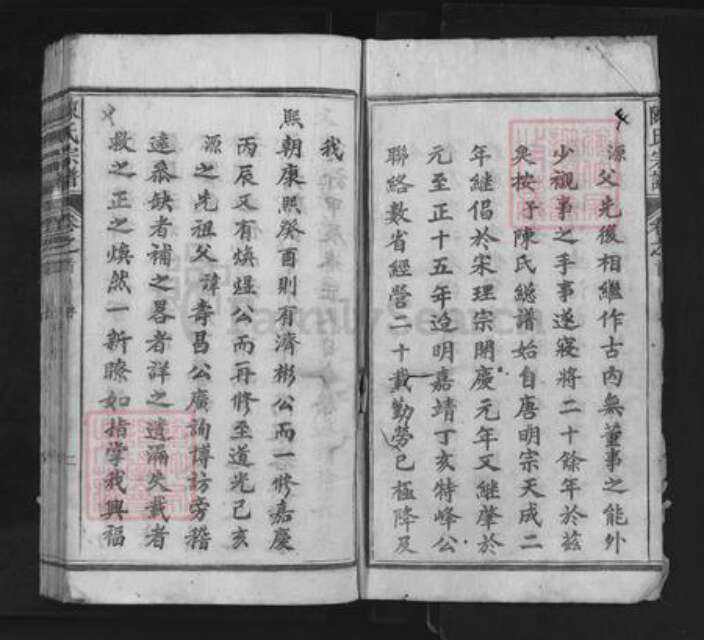 源父先後相繼作古內無董事之能外
少襯事之手事遂寢將二十餘年於茲
矣按予陳氏總譜始自唐明宗天成二
年繼倡於宋理宗開慶元年又繼肇於
元至正十五年迨明嘉靖丁亥特峰公
聯絡數省經營二十載勤勞已極降及
我
熙朝康熙癸酉則有濟彬公而一修嘉慶
丙辰又有煥煜公而再修至道光己亥
源之先祖父諱壽昌公廣詢博訪旁稽
遠參缺者補之畧者詳之遺漏失載者
救之正之煥然一新瞭如指掌我興福
陳氏宗譜
卷之首
FamilySearch